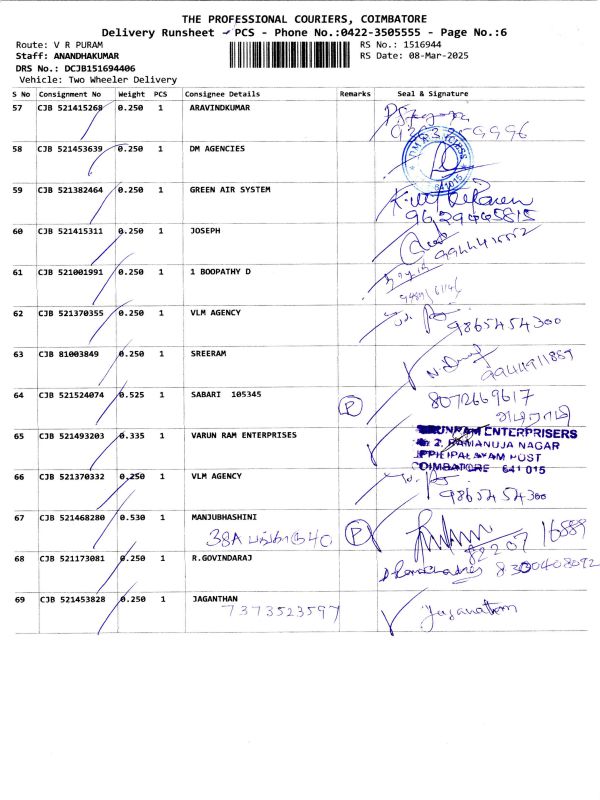 THE PROFESSIONAL COURIERS, COIMBATORE
Delivery Runsheet - PCS - Phone No.:0422-3505555 - Page No.:6
Route: V R PURAM
RS No.: 1516944
Staff: ANANDHAKUMAR
RS Date: 08-Mar-2025
DRS No.: DCJB151694406
Vehicle: Two Wheeler Delivery
S No Consignment No Weight PCS Consignee Details Remarks Seal & Signature
57 CJB 521415268 0.250 1 ARAVINDKUMAR
58 CJB 521453639 0.250 1 DM AGENCIES
641015
59 CJB 521382464 0.250 1 GREEN AIR SYSTEM
9629445815
60 CJB 521415311 0.250 1 JOSEPH
61 CJB 521001991 0.250 1 1 BOOPATHY D
62 CJB 521370355 0.250 1 VLM AGENCY
9865454300
63 CJB 81003849 0.250 1 SREERAM
9944911859
64 CJB 521524074 0.525 1 SABARI 105345 P 8072669617
65 CJB 521493203 0.335 1 VARUN RAM ENTERPRISES
ENTERPRISERS
2, RAMANUJA NAGAR
UPPILIPALAYAM POST
COIMBATORE 641 015
66 CJB 521370332 0.250 1 VLM AGENCY
9865454300
67 CJB 521468280 0.530 1 MANJUBHASHINI P
38A
82207 16889
68 CJB 521173081 0.250 1 R.GOVINDARAJ 8300408092
69 CJB 521453828 0.250 1 JAGANTHAN
7373523597 Jaganathan